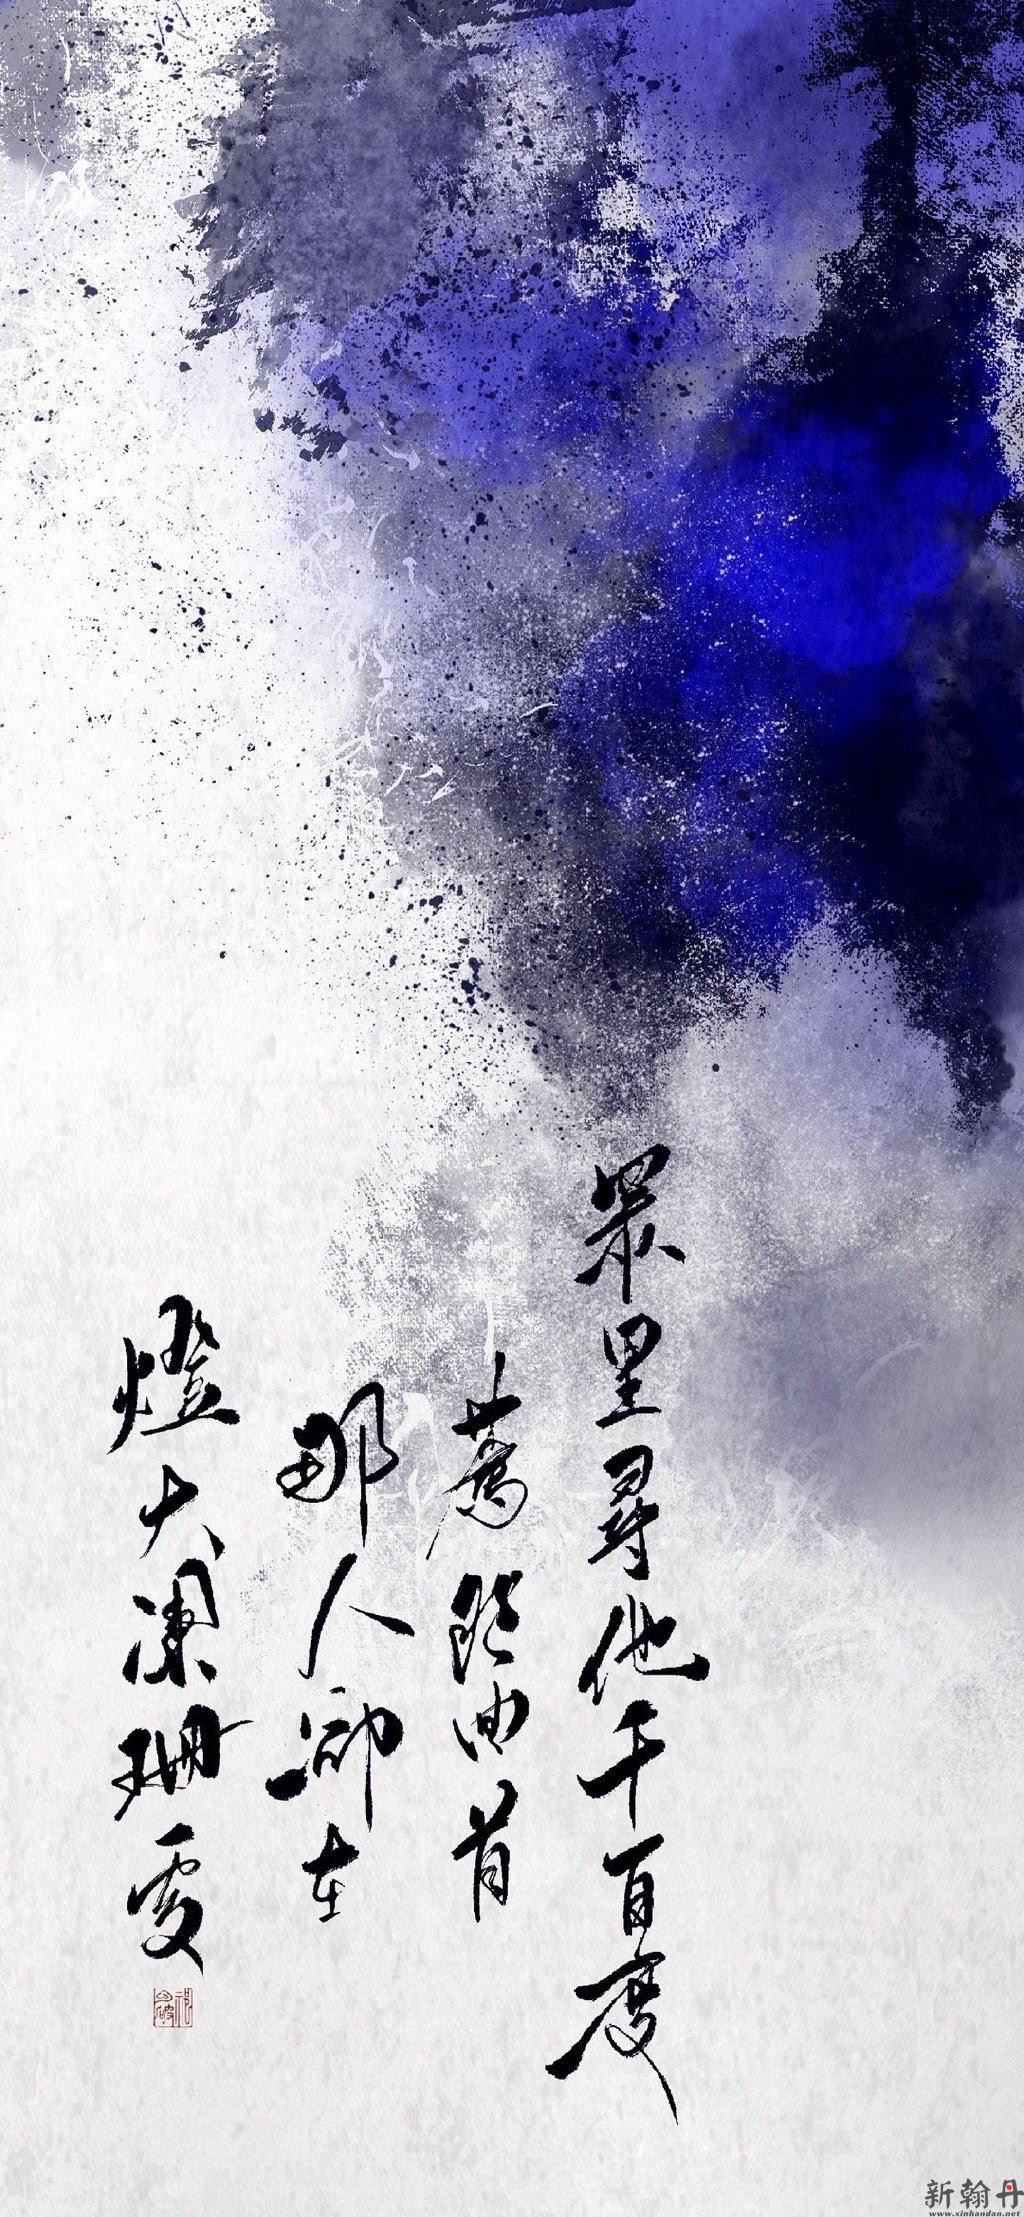 眾里尋他千百度
驀然回首
那人卻在
燈火闌珊處
新翰丹
www.xinhandan.net